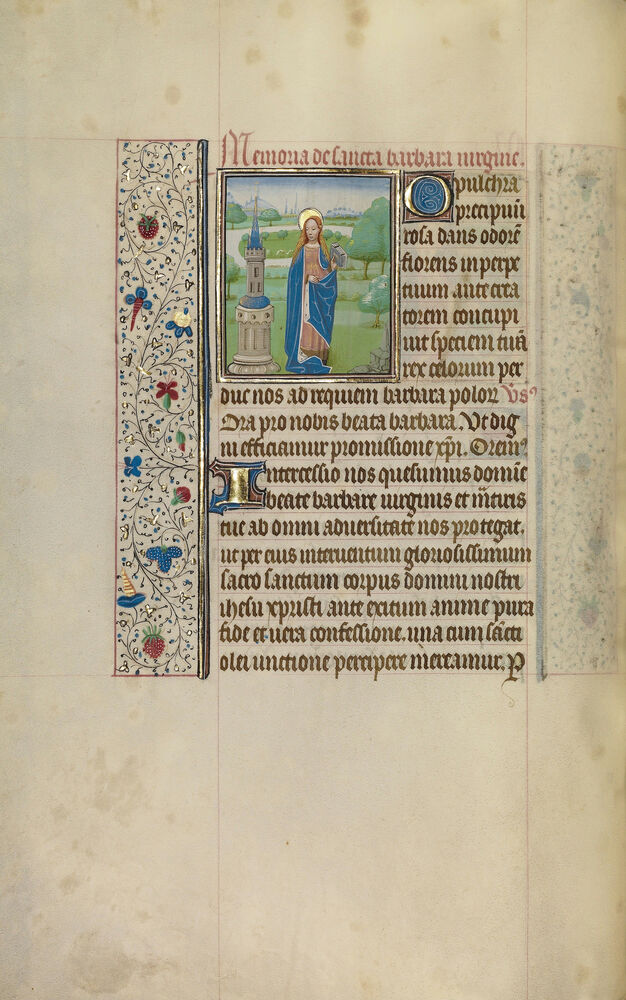 Memoria de sancta barbara virgine.
O pulchra
precipuū
rosa dans odorē
florens in perpe
tuum ante crea
torem concupi
uit speciem tuā
rex celorum per
duc nos ad requiem barbara polorum vs
Ora pro nobis beata barbara. Vt dig
ni efficiamur promissione xp̄i. Oremus
Intercessio nos quesumus domīe
beate barbare uirginis et m̄tiris
tue ab omni aduersitate nos protegat.
ut per eius interuentum gloriosissimum
sacro sanctum corpus domini nostri
ihesu xpristi ante exitum anime pura
fide et uera confessione. una cum sācti
olei unctione percipere mereamur. P